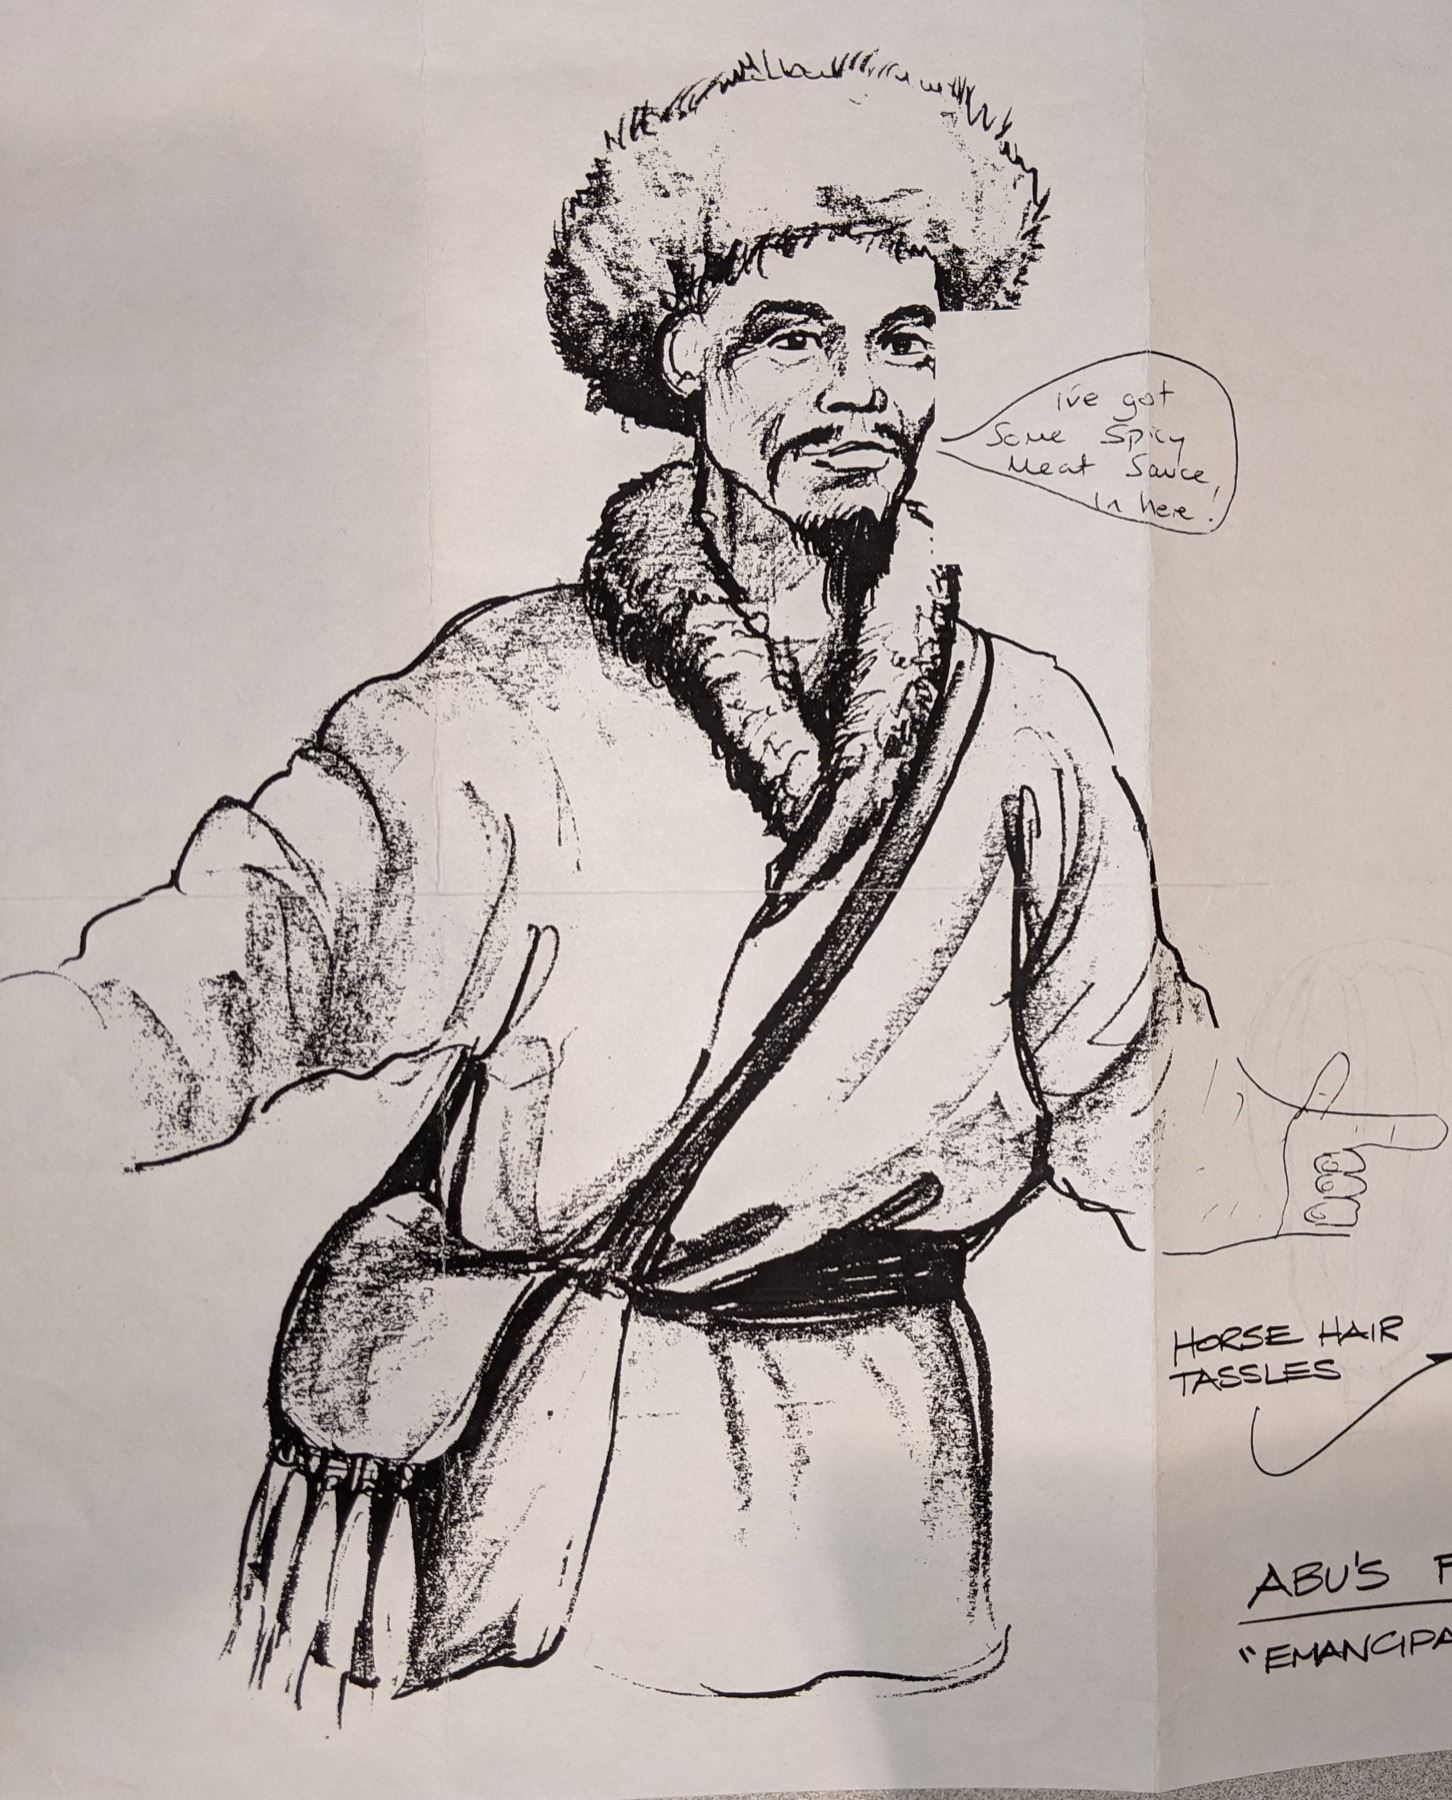 ive got
Some Spicy
Meat Sauce,
in here!
HORSE HAIR
TASSLES
ABU'S F
"EMANCIPA